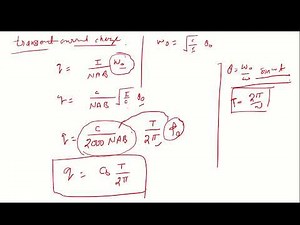 transient current charge
q = I/NAB ω₀
q = c/NAB √(I/c) θ₀
q = c/2000 NAB T/2π φ₀
q = C_b T/2π
ω₀ = √(c/I) θ₀
θ = ω₀/ω sin ωt
T = 2π/ω